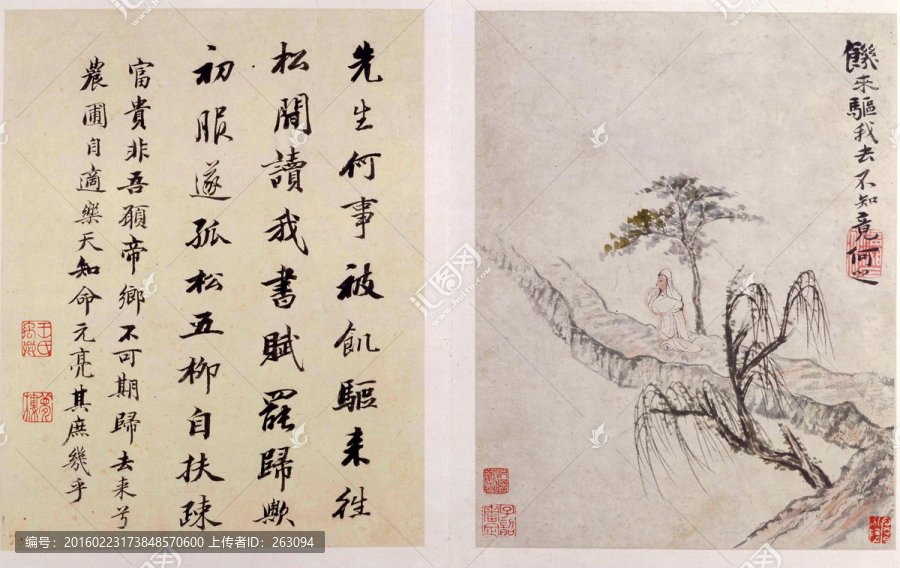 饑来驅我去不知竟何之
先生何事被飢驅来往
松間讀我書賦罷歸歟
初服遂孤松五柳自扶疎
富貴非吾願帝鄉不可期歸去来兮
農圃自適樂天知命元亮其庶幾乎
王氏禹卿
夢樓
汇图网
编号：20160223173848570600 上传者ID：263094